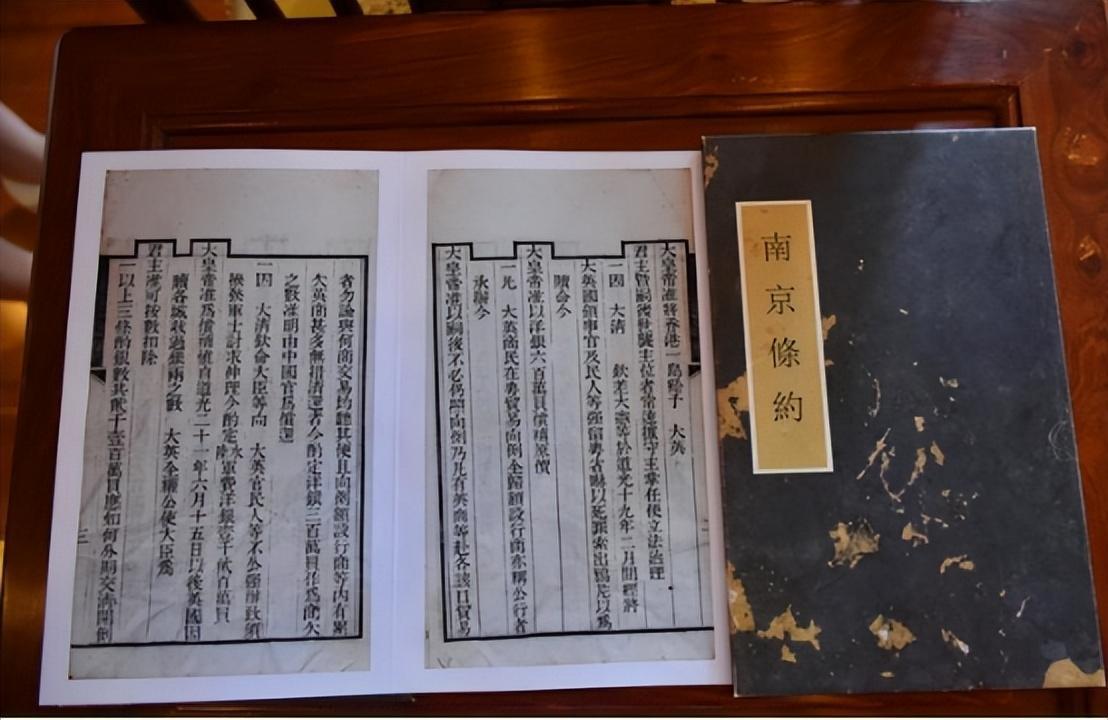 南京條約
大皇帝准將香港一島給予　大英
君主暨嗣後世襲主位者常遠據守主掌任便立法治理
一因　大清　　欽差大憲等於道光十九年二月間經將
大英國領事官及民人等強留粵省嚇以死罪索出鴉片以為
贖命今
大皇帝准以洋銀六百萬員償補原價
一凡　大英商民在粵貿易向例全歸額設行商亦稱公行者
承辦今
大皇帝准以嗣後不必仍照向例乃凡有英商等赴各該口貿易
者勿論與何商交易均聽其便且向例額設行商等內有累
欠英商甚多無措清還者今酌定洋銀三百萬員作為商欠
之數准明由中國官為償還
一因　大清欽命大臣等向　大英官民人等不公強辦致須
撥發軍士討求伸理今酌定水陸軍費洋銀壹千貳百萬員
大皇帝准為償補惟自道光二十一年六月十五日以後英國因
贖各城收過銀兩之數　大英全權公使大臣為
君主准可按數扣除
一以上三條酌銀數共貳千壹百萬員應如何分期交清開列